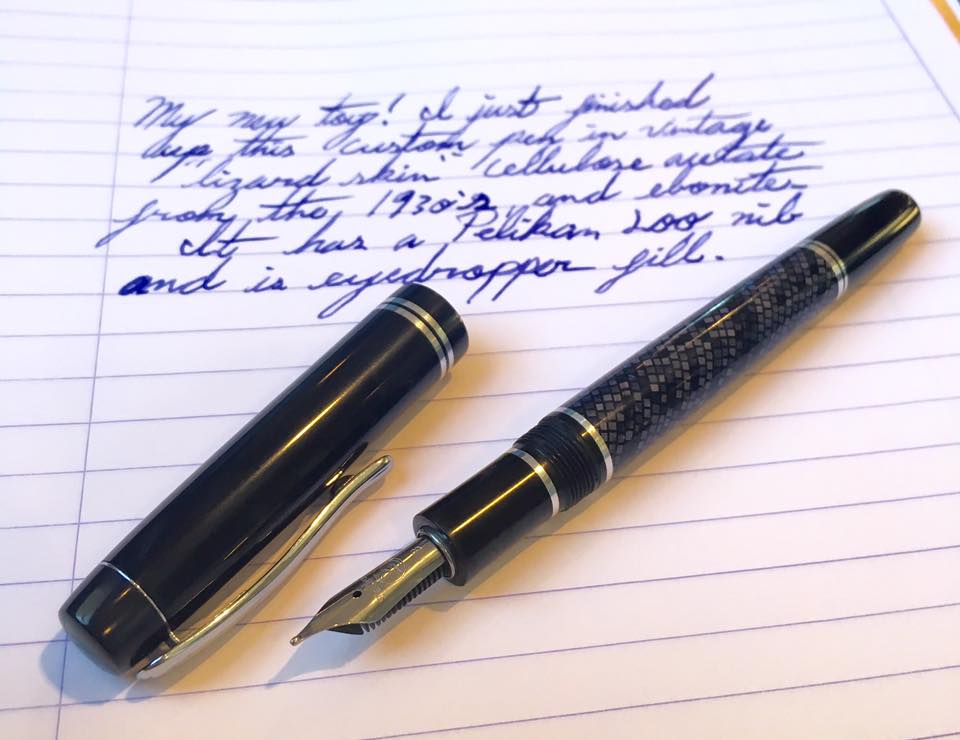 My new toy! I just finished
up this custom pen in vintage
"lizard skin" cellulose acetate
from the 1930's, and ebonite.
It has a Pelikan 200 nib
and is eyedropper fill.